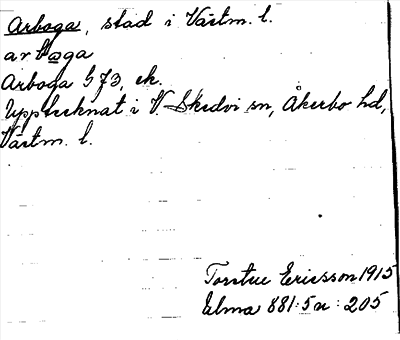 Arboga, stad i Västm. l.
arbωga
Arboga 573, ek.
Upptecknat i V. Skedvi sn, Åkerbo hd,
Västm. l.
Torsten Ericsson 1915
Elma 881:5a:205